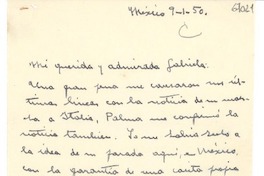 México 9-1-50.
Mi querida y admirada Gabriela:
Una gran pena me causaron sus úl-
timas líneas con la noticia de su mar-
cha a Italia, Palma me confirmó la
noticia también. Yo me había hecho a
la idea de su parada aquí, en México,
con la garantía de una casita propia